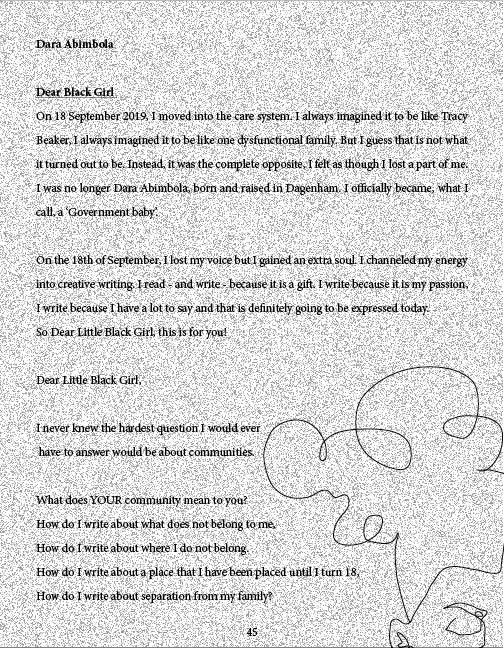 Dara Abimbola
Dear Black Girl
On 18 September 2019, I moved into the care system. I always imagined it to be like Tracy
Beaker, I always imagined it to be like one dysfunctional family. But I guess that is not what
it turned out to be. Instead, it was the complete opposite, I felt as though I lost a part of me.
I was no longer Dara Abimbola, born and raised in Dagenham. I officially became, what I
call, a ‘Government baby’.
On the 18th of September, I lost my voice but I gained an extra soul. I channeled my energy
into creative writing. I read - and write - because it is a gift. I write because it is my passion,
I write because I have a lot to say and that is definitely going to be expressed today.
So Dear Little Black Girl, this is for you!
Dear Little Black Girl,
I never knew the hardest question I would ever
have to answer would be about communities.
What does YOUR community mean to you?
How do I write about what does not belong to me,
How do I write about where I do not belong.
How do I write about a place that I have been placed until I turn 18,
How do I write about separation from my family?
45